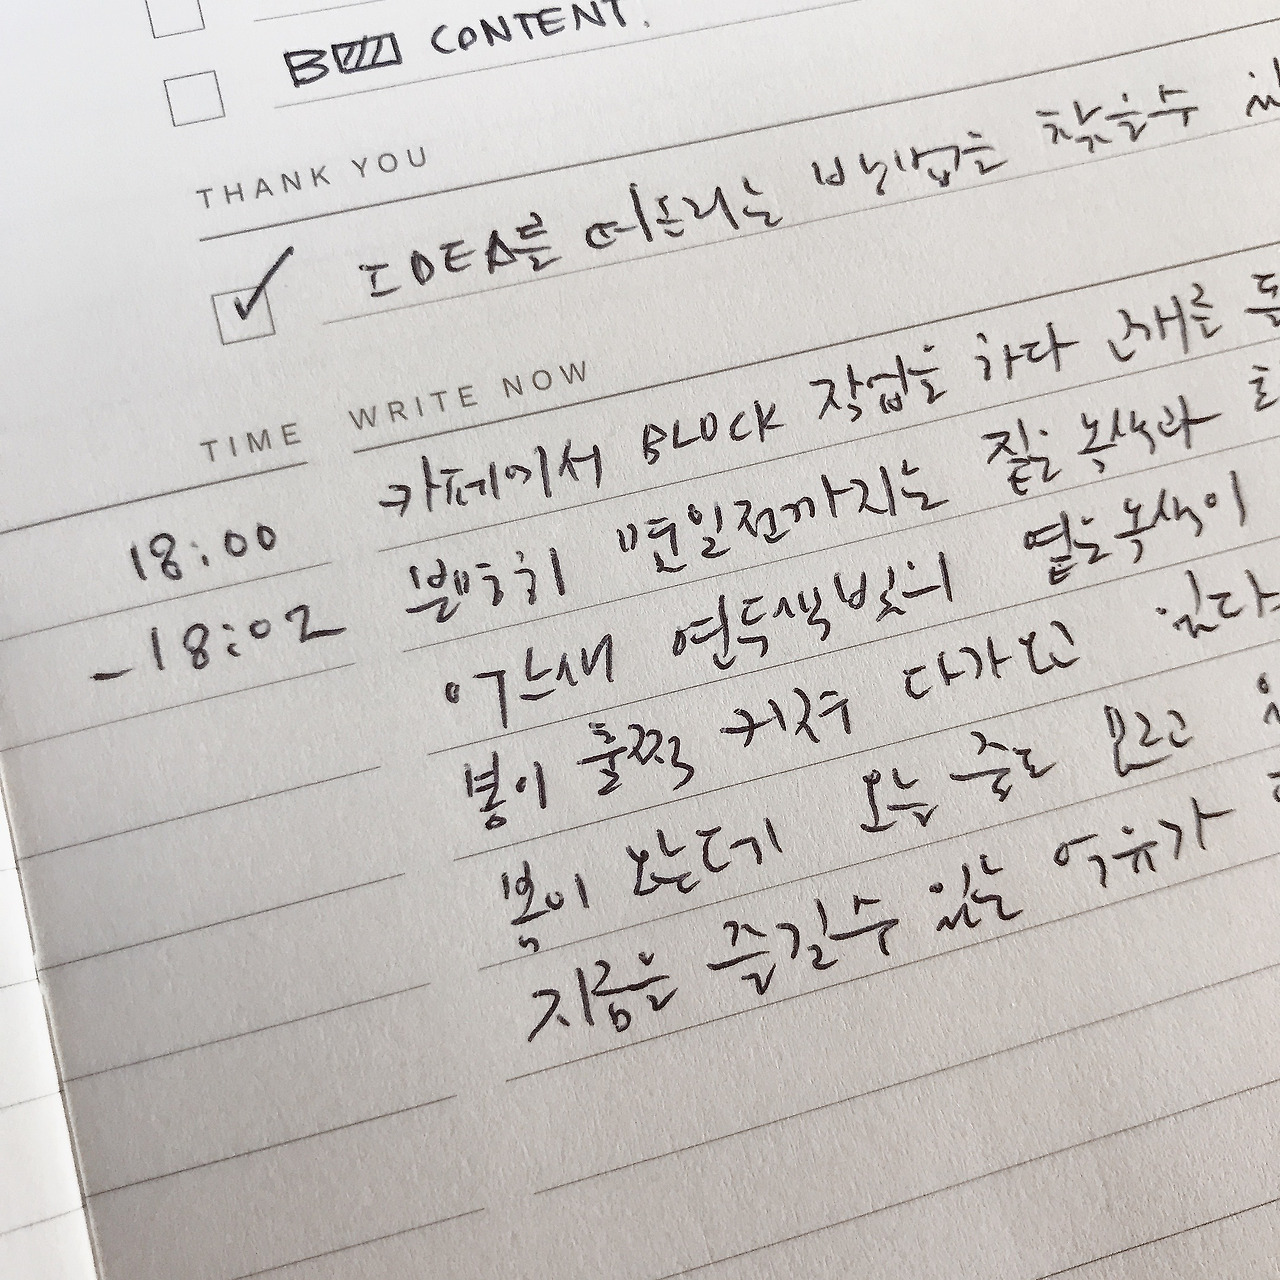 B CONTENT.
THANK YOU
IDEA를 떠올리는 방법을 찾을수
TIME WRITE NOW
18:00 카페에서 BLOCK 작업을 하다 고개를
-18:02 분명히 몇일전까지는 짙은 녹색과
어느새 연두색빛의 옅은녹색이
봄이 훌쩍 커져 다가오고 있다.
봄이 오는데 오는 줄도 모르고
지금을 즐길수 있는 여유가